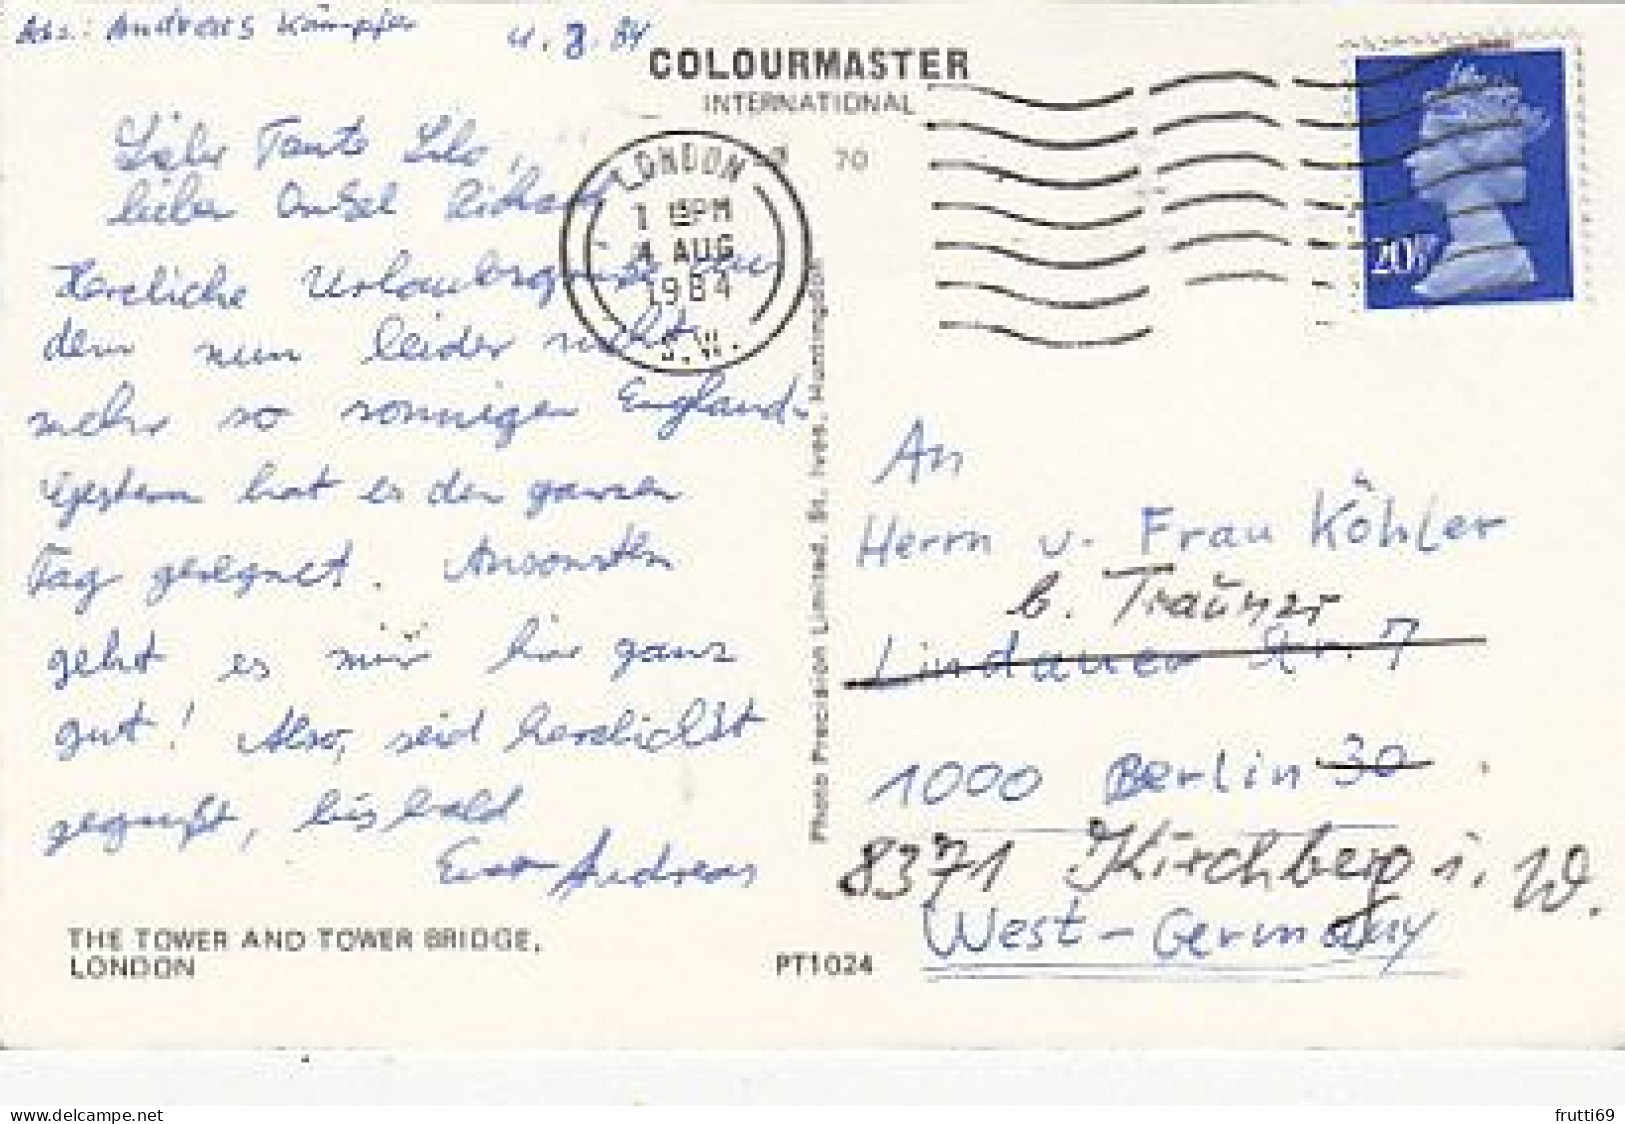 Abs.: Andreas Kämpfer 4.8.84
COLOURMASTER
INTERNATIONAL
70
Liebe Tante Lilo,
lieber Onkel Richard
Herzliche Urlaubsgrüße aus
dem nun leider nicht
mehr so sonnigen England.
Gestern hat es den ganzen
Tag geregnet. Ansonsten
geht es mir hier ganz
gut! Also, seid herzlichst
gegrüßt, bis bald
Euer Andreas
THE TOWER AND TOWER BRIDGE,
LONDON
PT1024
Photo Precision Limited, St. Ives, Huntingdon
LONDON
1 15PM
4 AUG
1984
S.W.
20½P
An
Herrn u. Frau Köhler
b. Trauner
Lindauer Str. 7
1000 Berlin 30
8371 Kirchberg i. W.
West-Germany
www.delcampe.net
frutti69